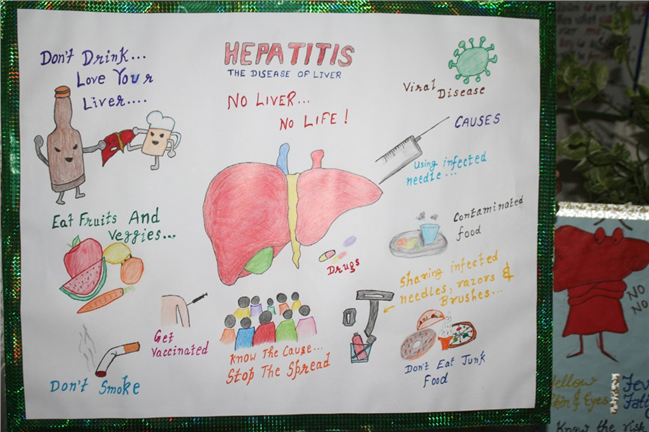 Don't Drink...
Love Your
Liver....
HEPATITIS
THE DISEASE OF LIVER
NO LIVER...
NO LIFE!
Viral Disease
CAUSES
Using infected
needle...
Eat Fruits And
Veggies...
Contaminated
food
Drugs
Sharing infected
needles, razors &
Brushes...
Get
Vaccinated
Know The Cause...
STOP The SPREAD
Don't Smoke
Don't Eat Junk
Food
NO
NO
Yellow
Skin & Eyes
Know the risk